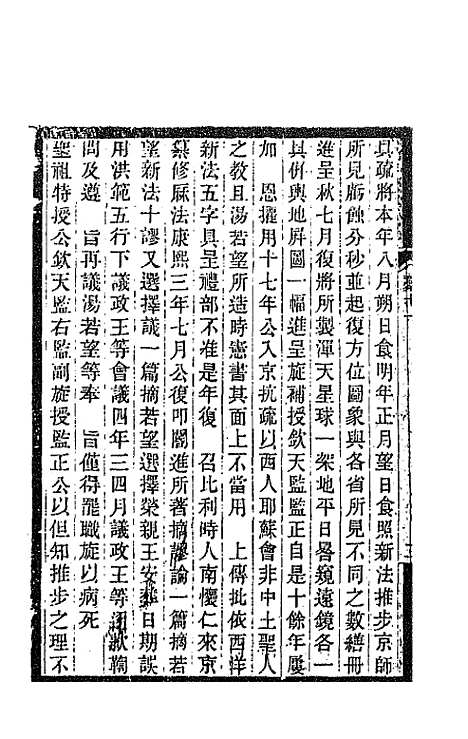 具疏將本年八月朔日食明年正月望日食照新法推步京師
所見虧蝕分秒並起復方位圖象與各省所見不同之數繕冊
進呈秋七月復將所製渾天星球一架地平日晷窺遠鏡各一
具併輿地屏圖一幅進呈旋補授欽天監監正自是十餘年屢
加　恩擢用十七年公入京抗疏以西人耶蘇會非中土聖人
之教且湯若望所造時憲書其面上不當用　上傳批依西洋
新法五字具呈禮部不准是年復　召比利時人南懷仁來京
纂修厤法康熙三年七月公復叩閽進所著摘謬論一篇摘若
望新法十謬又選擇議一篇摘若望選擇榮親王安葬日期誤
用洪範五行下議政王等會議四年三四月議政王等　鞫
問及遵　旨再議湯若望等奉　旨僅得罷職旋以病死
聖祖特授公欽天監右監副旋授監正公以但知推步之理不